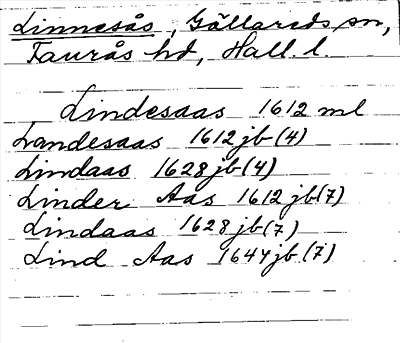 Linnesås, Gällareds sn,
Faurås hd, Hall. l.
Lindesaas 1612 ml
Landesaas 1612 jb (4)
Lindaas 1628 jb (4)
Linder Aas 1612 jb (7)
Lindaas 1628 jb (7)
Lind Aas 1644 jb (7)